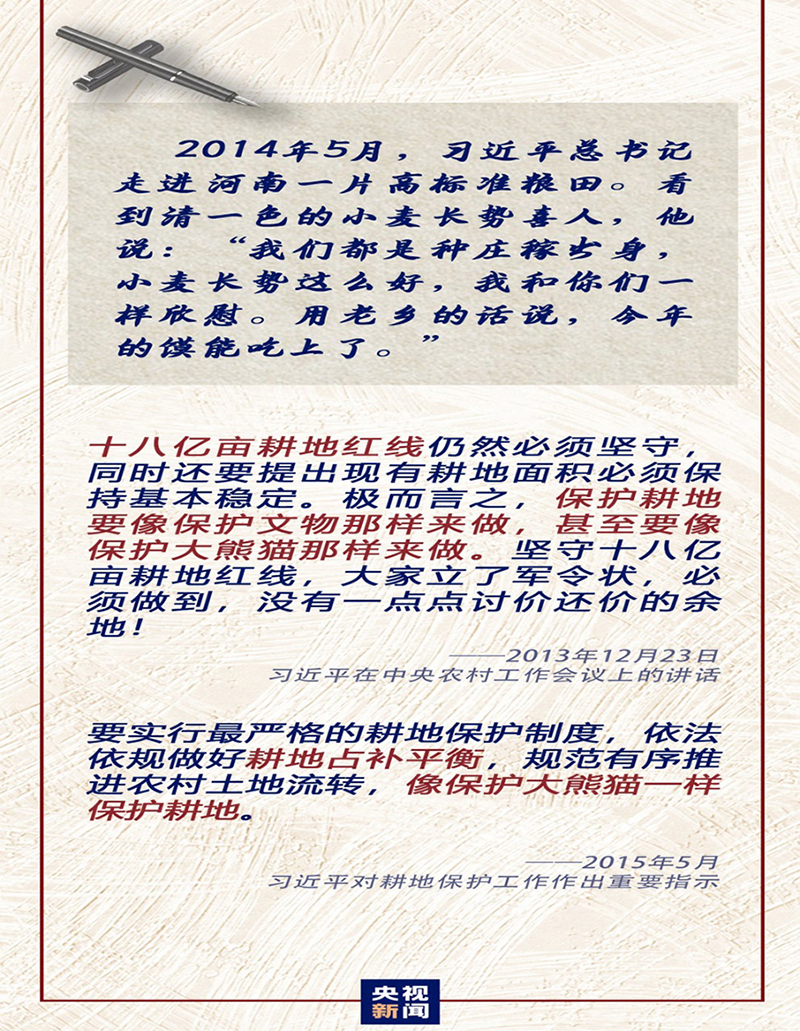 2014年5月，习近平总书记
走进河南一片高标准粮田。看
到清一色的小麦长势喜人，他
说：“我们都是种庄稼出身，
小麦长势这么好，我和你们一
样欣慰。用老乡的话说，今年
的馍能吃上了。”
十八亿亩耕地红线仍然必须坚守，
同时还要提出现有耕地面积必须保
持基本稳定。极而言之，保护耕地
要像保护文物那样来做，甚至要像
保护大熊猫那样来做。坚守十八亿
亩耕地红线，大家立了军令状，必
须做到，没有一点点讨价还价的余
地！
——2013年12月23日
习近平在中央农村工作会议上的讲话
要实行最严格的耕地保护制度，依法
依规做好耕地占补平衡，规范有序推
进农村土地流转，像保护大熊猫一样
保护耕地。
——2015年5月
习近平对耕地保护工作作出重要指示
央视
新闻